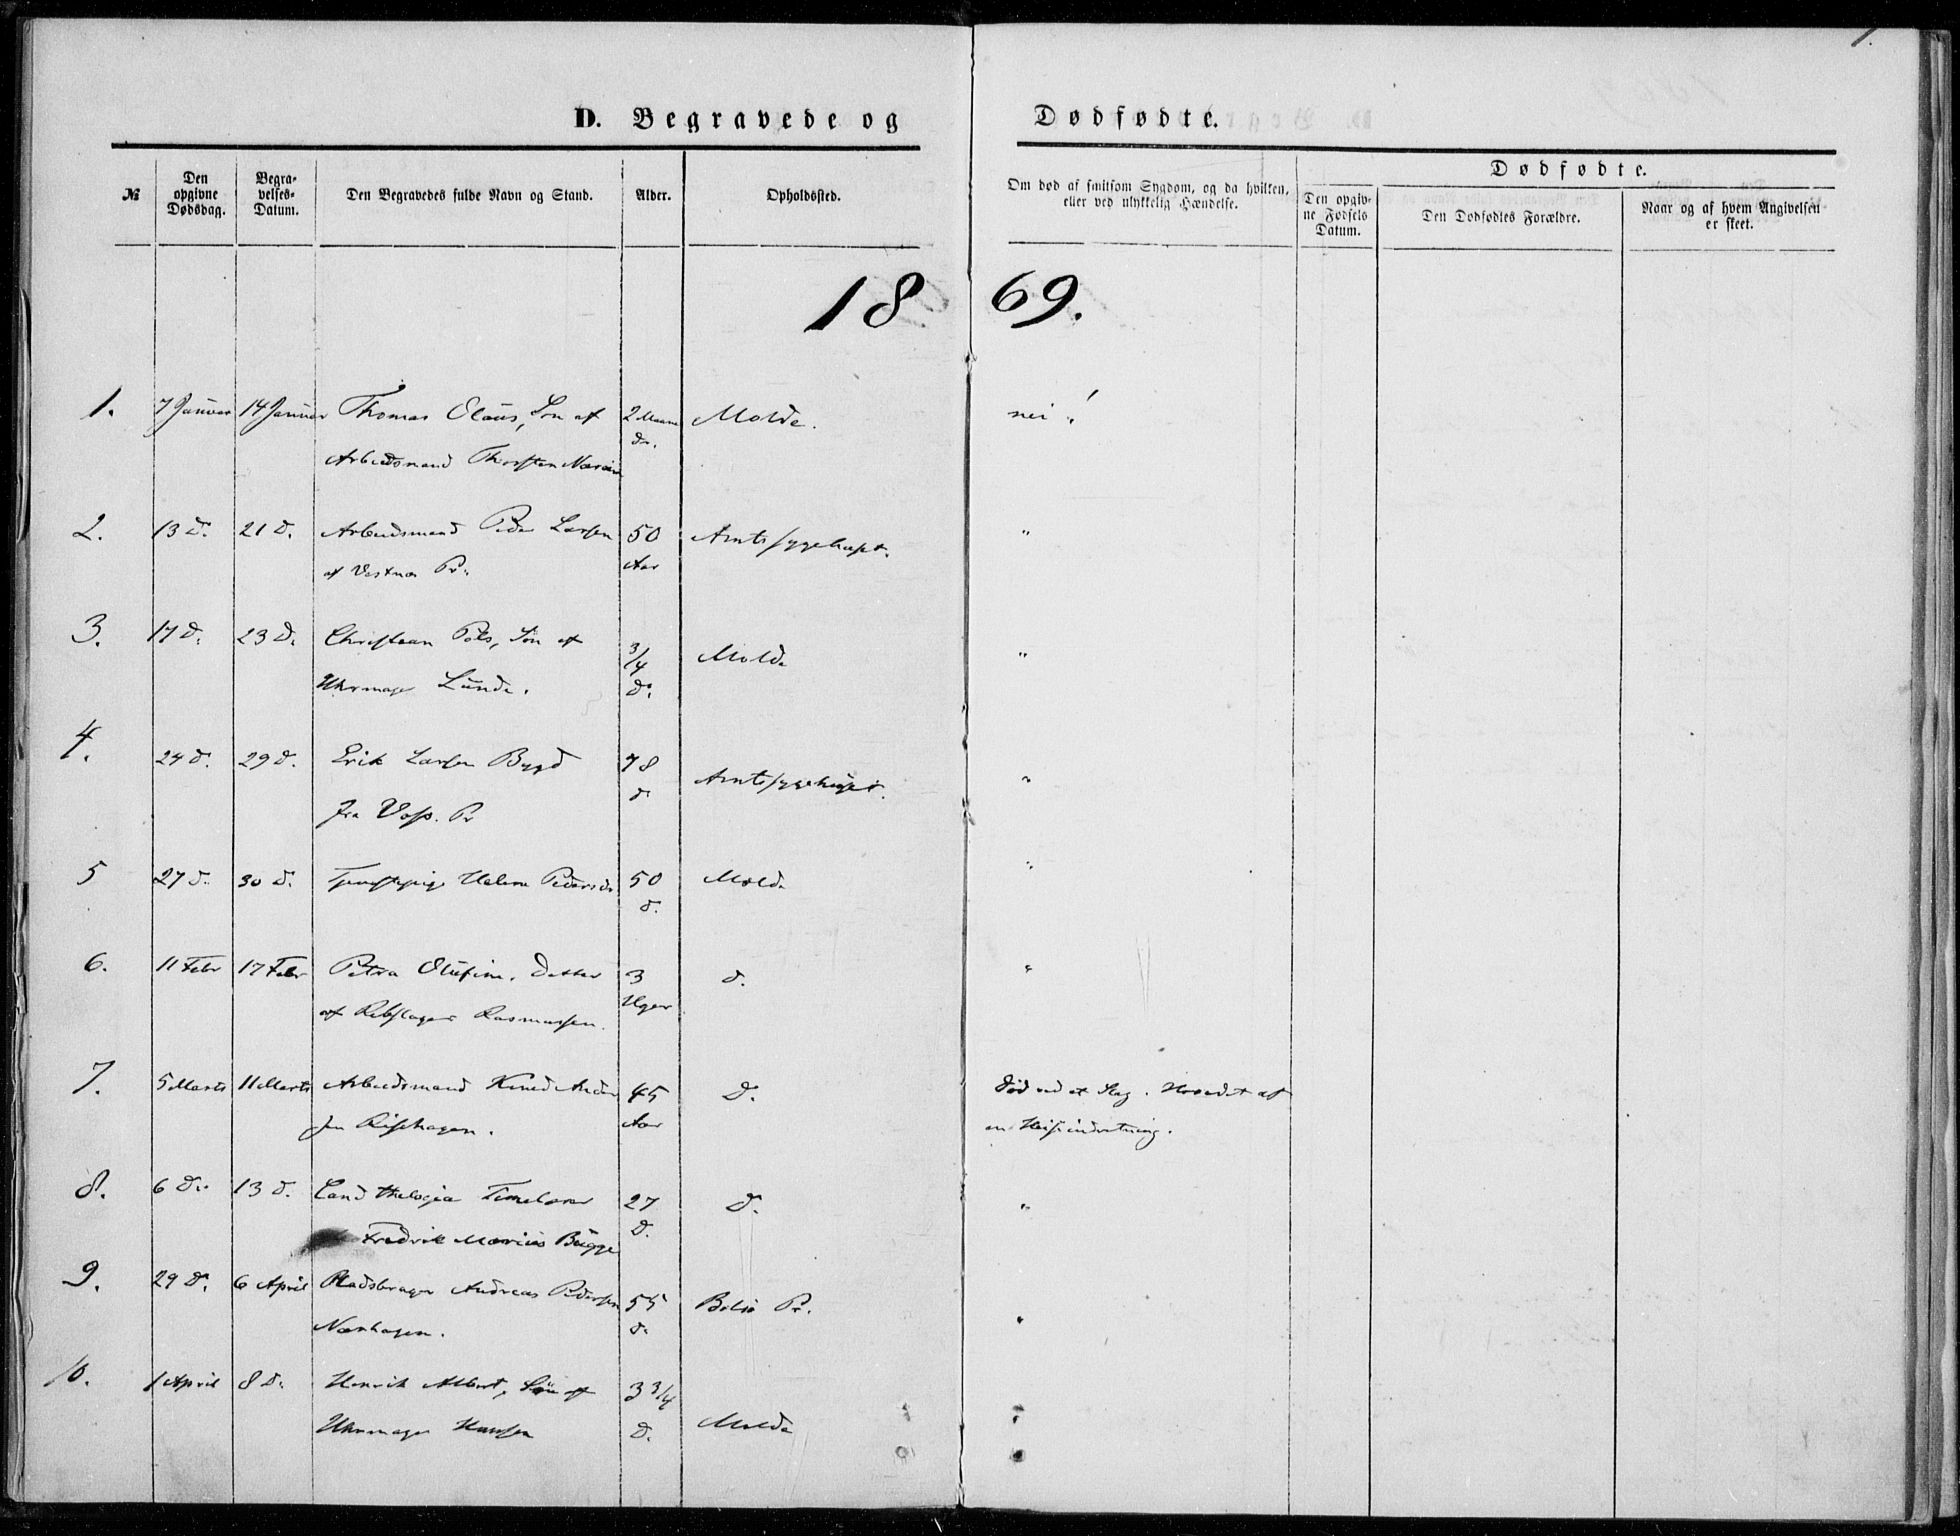 D. Begravede og Dødfødte.
№
Den opgivne Dødsdag.
Begravelses-Datum.
Den Begravedes fulde Navn og Stand.
Alder.
Opholdssted.
Om død af smitsom Sygdom, og da hvilken, eller ved ulykkelig Hændelse.
Dødfødte.
Den opgivne Fødsels Datum.
Den Dødfødtes Forældre.
Naar og af hvem Angivelsen er skeet.
1869.
1. 7 Januar 14 Januar Thomas Olaus, Søn af 2 Maaneder. Molde. nei!
Arbeidsmand Thorsten
2. 13 D. 21 D. Arbeidsmand Peder Larsen 50 Amtssygehuset. "
af Vestnæs Pr. Aar
3. 17 D. 23 D. Christian Søn af 3/4 Molde "
Uhrmager Lunde. D.
4. 24 D. 29 D. Erik Larsen Bygd 78 Amtssygehuset. "
fra Voss Pr d
5 27 d. 30 d. Tjenestepige 50 Molde "
d.
6. 11 Febr 17 Febr Petra Olufine. Datter 3 d. "
af Rebslager Rasmussen. Uger
7. 5 Marts 11 Marts Arbeidsmand Knud Ander 45 D. Død ved et Slag i Hovedet af
sen Rishagen. Aar en Heiseindretning.
8. 6 D. 13 d. Cand theologiæ Timelærer 27 D. "
Fredrik Marius Bugge D.
9. 29 D. 6 April Pladsbruger Andreas Pedersen 55 Bolsø Pr. "
Nøhagen. d.
10. 1 April 8 D. Henrik Albert, Søn af 3 3/4 Molde "
Uhrmager Hansen D.